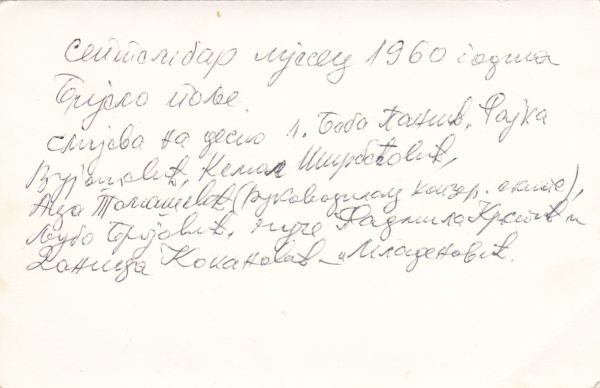 септембар мјесец 1960 година
Бијело поље.
слијева на десно 1. Боба Панић, Рајка
Вујошевић, Кемал Ширбеговић,
Аца Томашевић (Руководилац концер. екипе),
Љубо Бројовић, чуче Радмила Крстић и
Даница Кокановић - Младеновић.